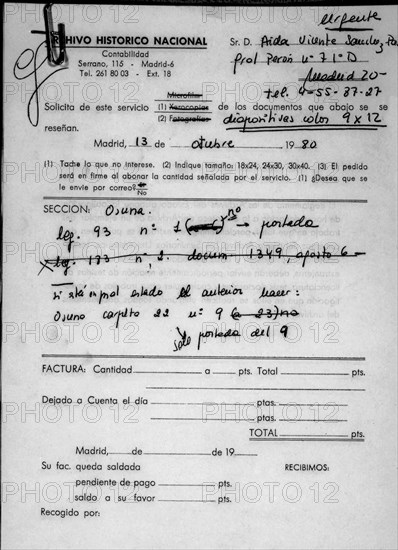 Urgente
ARCHIVO HISTORICO NACIONAL
Contabilidad
Serrano, 115 - Madrid-6
Tel. 261 80 03 - Ext. 18
Sr. D. Aida Vicente
prol Perón nº 7 1º D
Madrid 20-
tel. 4-55-37-27
Microfilm
Solicita de este servicio (1) Xerocopias de los documentos que abajo se
(2) Fotografías diapositivas color 9 x 12
reseñan.
Madrid, 13 de octubre 1980
(1) Tache lo que no interese. (2) Indique tamaño: 18x24, 24x30, 30x40. (3) El pedido
será en firme al abonar la cantidad señalada por el servicio. (1) ¿Desea que se
le envíe por correo? Sí
No
SECCION: Osuna.
leg. 93 nº 1 nº → portada
leg. 173 nº 2. docum 1349, agosto 6
si está en mal estado el anterior hacer:
Osuna carpeta 22 nº 9 (a 23) no
solo portada del 9
FACTURA: Cantidad a pts. Total pts.
Dejado a Cuenta el día ptas.
ptas.
TOTAL pts.
Madrid, de de 19
Su fac. queda saldada RECIBIMOS:
pendiente de pago pts.
saldo a su favor pts.
Recogido por: